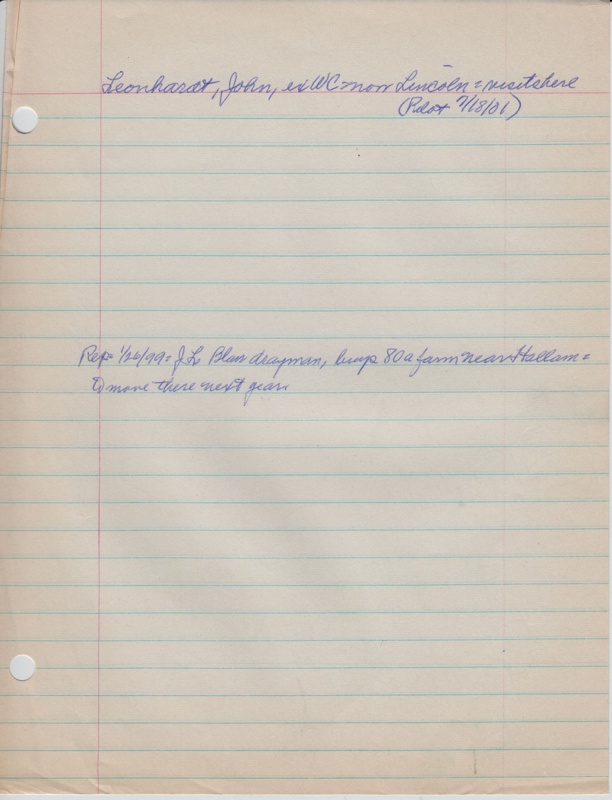 Leonhardt, John, ex WC = now Lincoln = visits here
(Pilot 7/18/01)
Rep = 1/26/99 = J L Blue drayman, buys 80a farm near Hallam =
To move there next year.